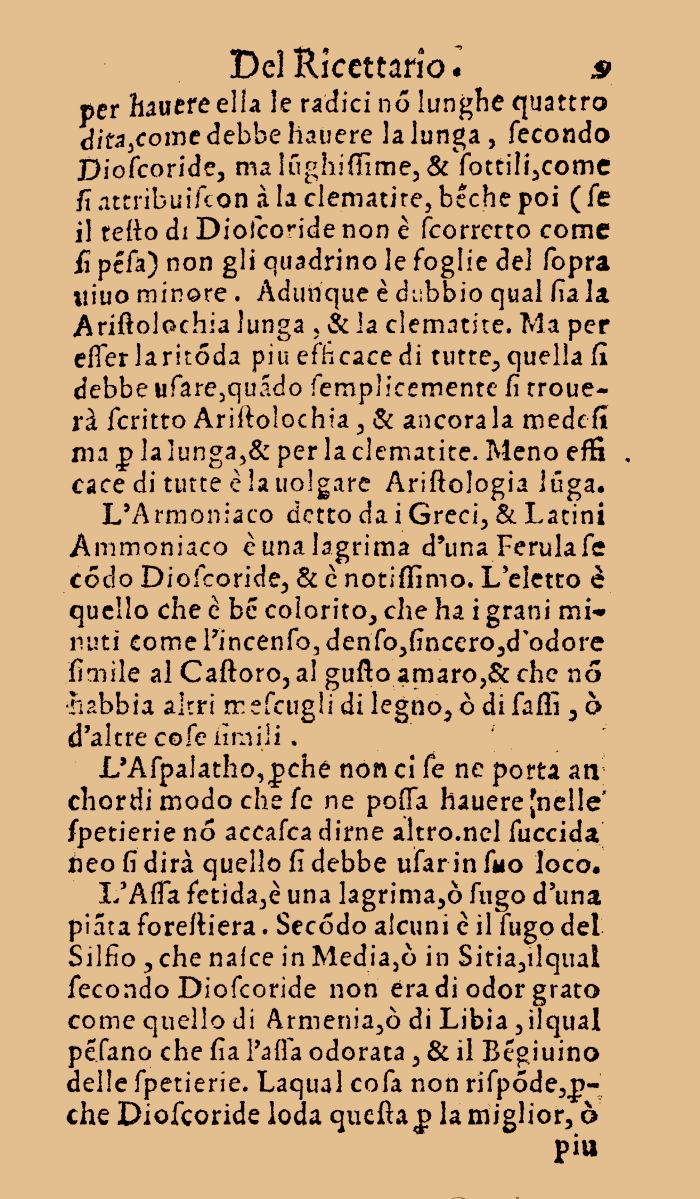 Del Ricettario. 9
per hauere ella le radici nõ lunghe quattro
dita,come debbe hauere la lunga, ſecondo
Dioſcoride, ma lũghiſſime, & ſottili,come
ſi attribuiſcon à la clematite, bẽche poi (ſe
il teſto di Dioſcoride non è ſcorretto come
ſi pẽſa) non gli quadrino le foglie del ſopra
uiuo minore. Adunque è dubbio qual ſia la
Ariſtolochia lunga, & la clematite. Ma per
eſſer la ritõda piu efficace di tutte, quella ſi
debbe uſare,quãdo ſemplicemente ſi troue-
rà ſcritto Ariſtolochia, & ancora la medeſi
ma ꝑ la lunga,& per la clematite. Meno effi
cace di tutte è la uolgare Ariſtologia lũga.
L'Armoniaco detto da i Greci, & Latini
Ammoniaco è una lagrima d'una Ferula ſe
cõdo Dioſcoride, & è notiſſimo. L'eletto è
quello che è bẽ colorito, che ha i grani mi-
nuti come l'incenſo, denſo,ſincero,d'odore
ſimile al Caſtoro, al guſto amaro,& che nõ
habbia altri meſcugli di legno, ò di ſaſſi, ò
d'altre coſe ſimili.
L'Aſpalatho,ꝑche non ci ſe ne porta an
chor di modo che ſe ne poſſa hauere nelle
ſpetierie nõ accaſca dirne altro.nel ſuccida
neo ſi dirà quello ſi debbe uſar in ſuo loco.
L'Aſſa fetida,è una lagrima,ò ſugo d'una
piãta foreſtiera. Secõdo alcuni è il ſugo del
Silfio, che naſce in Media,ò in Sitia,ilqual
ſecondo Dioſcoride non era di odor grato
come quello di Armenia,ò di Libia, ilqual
pẽſano che ſia l'aſſa odorata, & il Bẽgiuino
delle ſpetierie. Laqual coſa non riſpõde,ꝑ-
che Dioſcoride loda queſta ꝑ la miglior, ò
piu